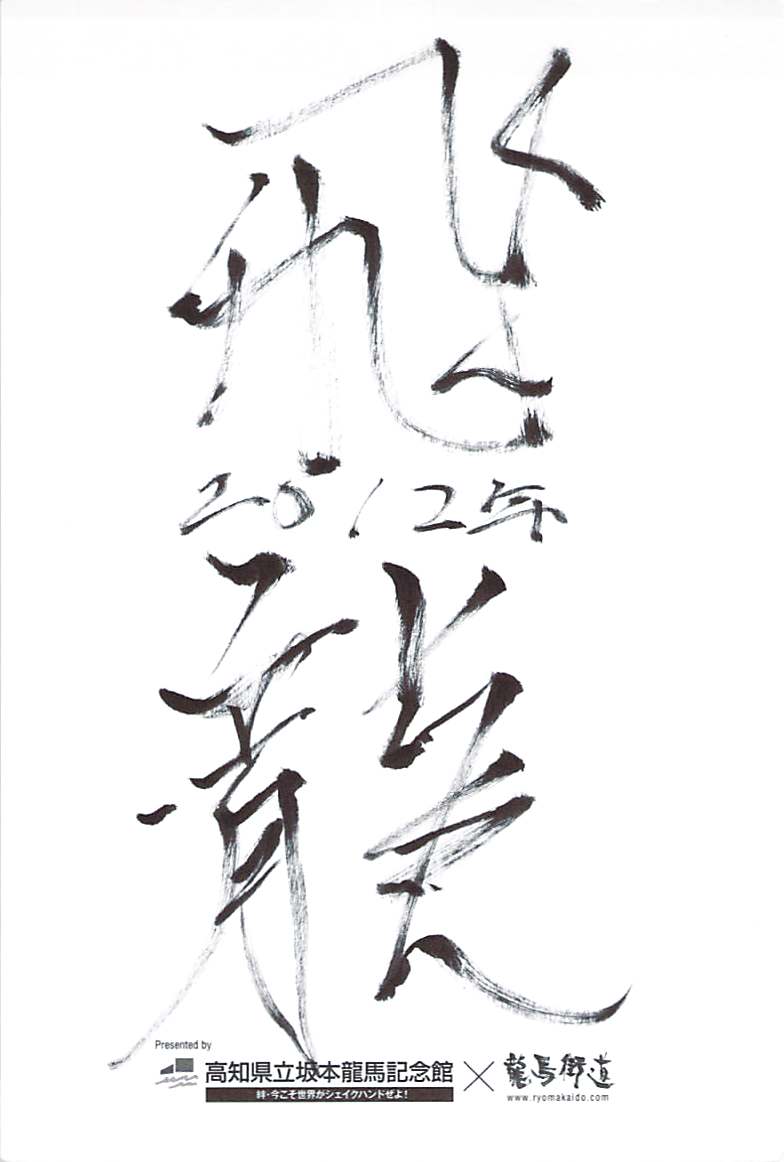 飛
2012年
龍
Presented by
高知県立坂本龍馬記念館 × 龍馬街道
絆・今こそ世界がシェイクハンドぜよ!
www.ryomakaido.com